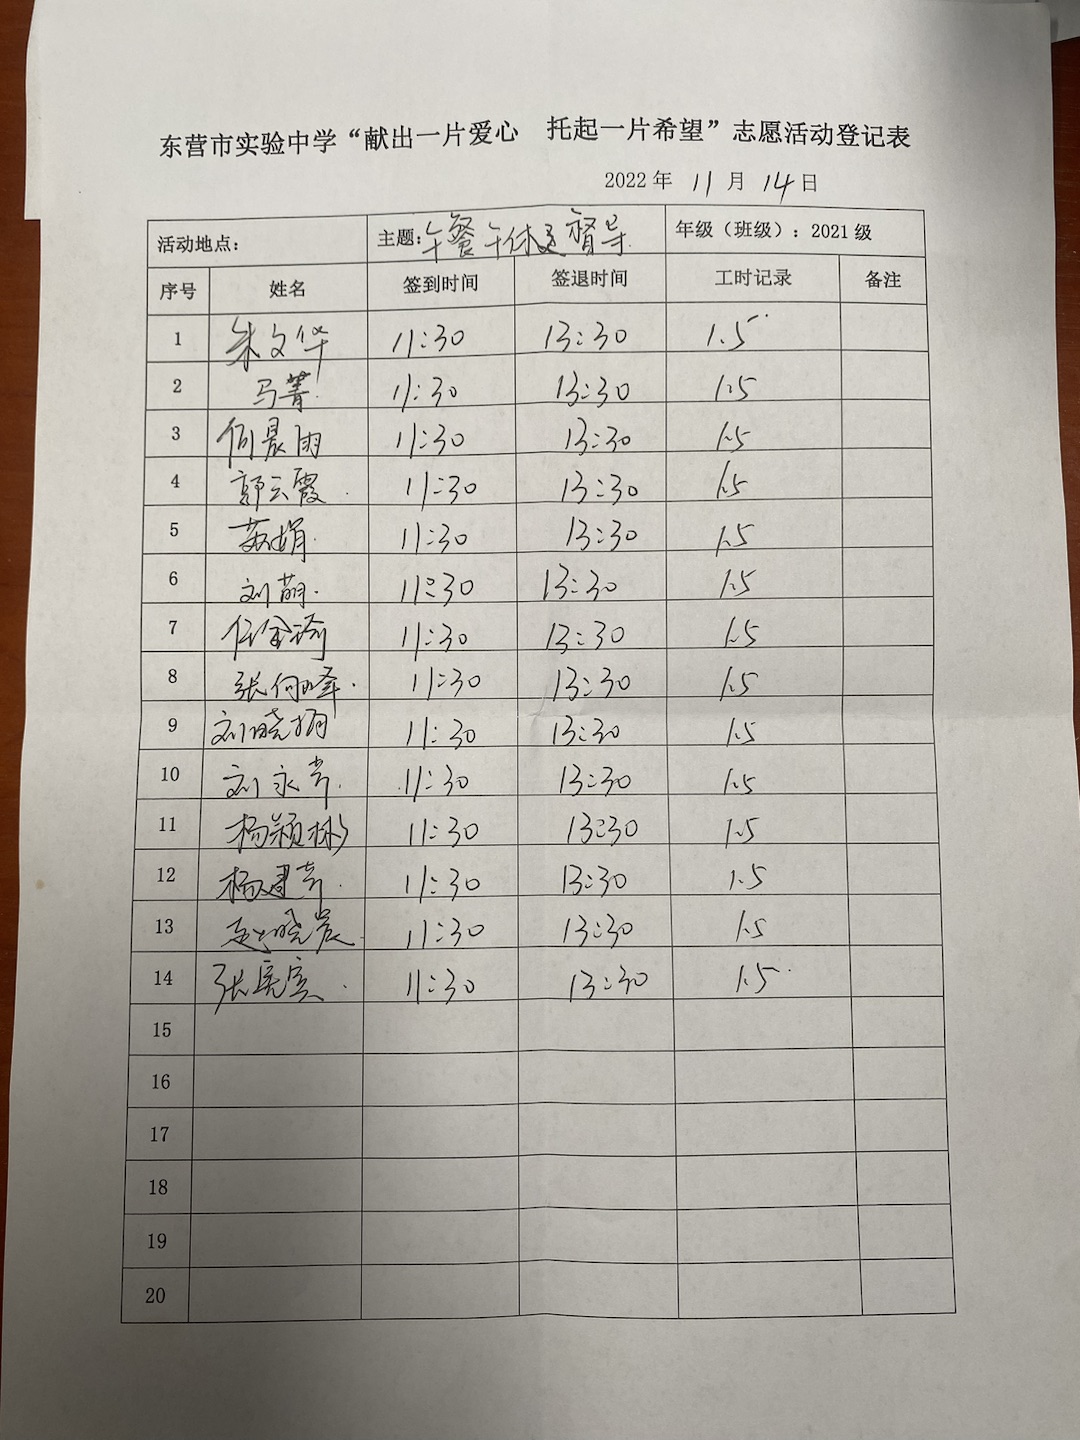 东营市实验中学“献出一片爱心 托起一片希望”志愿活动登记表
2022 年 11 月 14 日
活动地点： 主题：午餐午休 督导 年级（班级）：2021 级
序号 姓名 签到时间 签退时间 工时记录 备注
1 朱文华 11:30 13:30 1.5
2 马菁 11:30 13:30 1.5
3 何晨雨 11:30 13:30 1.5
4 郭云霞 11:30 13:30 1.5
5 娟 11:30 13:30 1.5
6 刘萌 11:30 13:30 1.5
7 任金 11:30 13:30 1.5
8 张何峰 11:30 13:30 1.5
9 刘晓 11:30 13:30 1.5
10 刘永 11:30 13:30 1.5
11 杨颖彬 11:30 13:30 1.5
12 杨建 11:30 13:30 1.5
13 赵晓 11:30 13:30 1.5
14 张 11:30 13:30 1.5
15
16
17
18
19
20